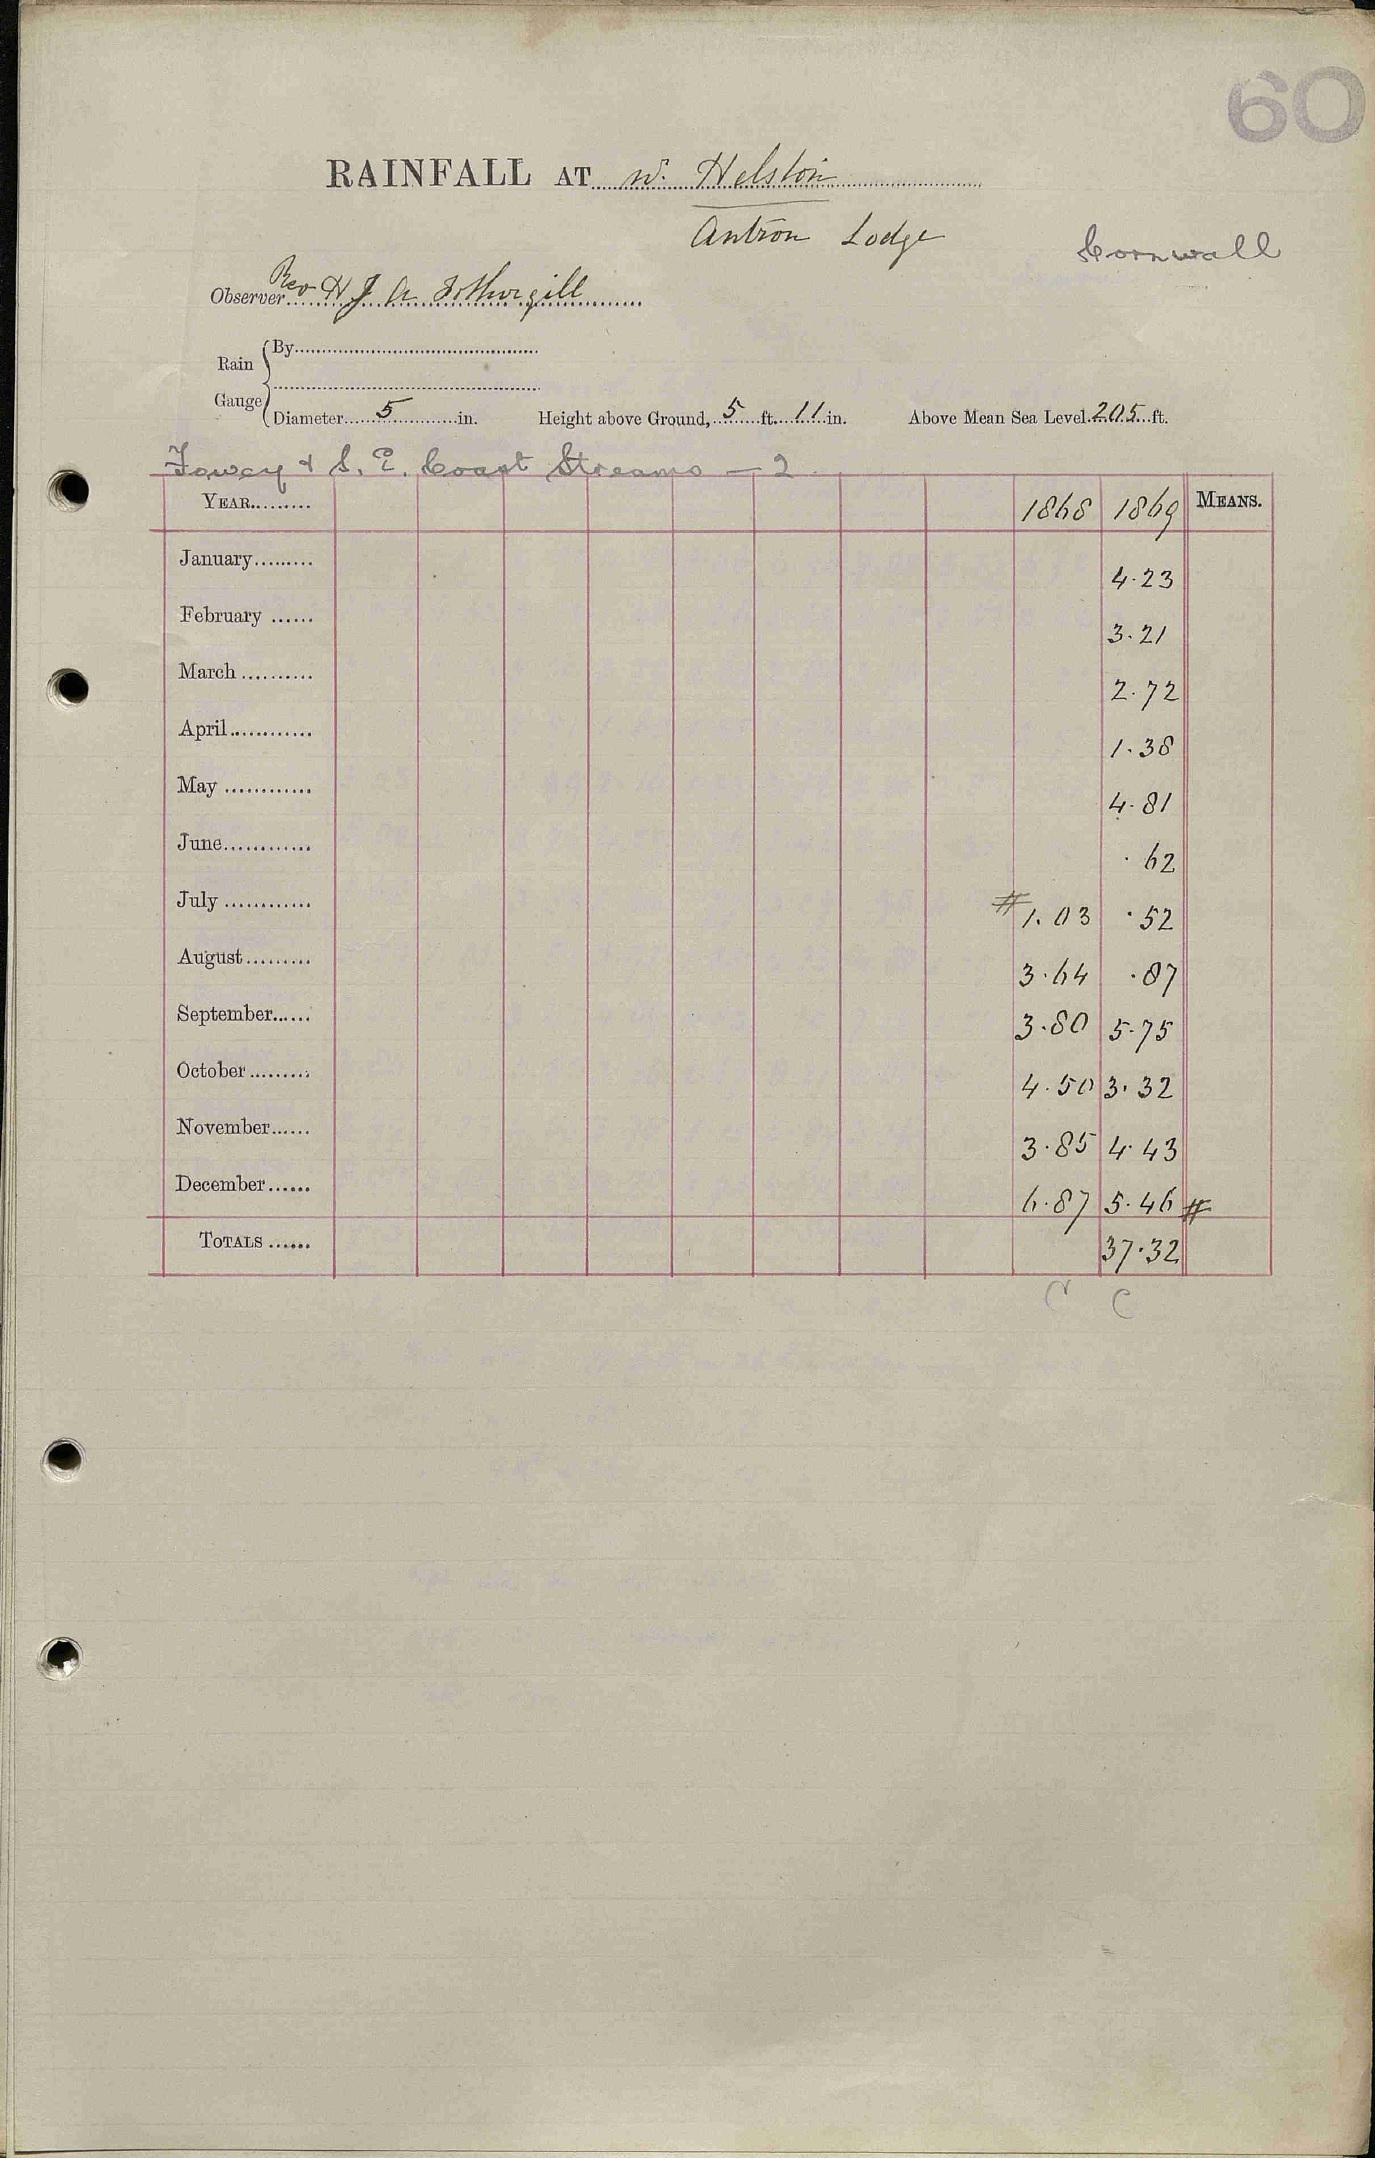 60
RAINFALL AT W. Helston
Antron Lodge
Cornwall
Observer Rev H J A Fothergill
Rain Gauge
By
Diameter 5 in. Height above Ground, 5 ft. 11 in. Above Mean Sea Level 205 ft.
Fowey & S. E. Coast Streams — 2
YEAR 1868 1869 MEANS.
January 4.23
February 3.21
March 2.72
April 1.38
May 4.81
June .62
July # 1.03 .52
August 3.64 .87
September 3.80 5.75
October 4.50 3.32
November 3.85 4.43
December 6.87 5.46 #
TOTALS 37.32
C C